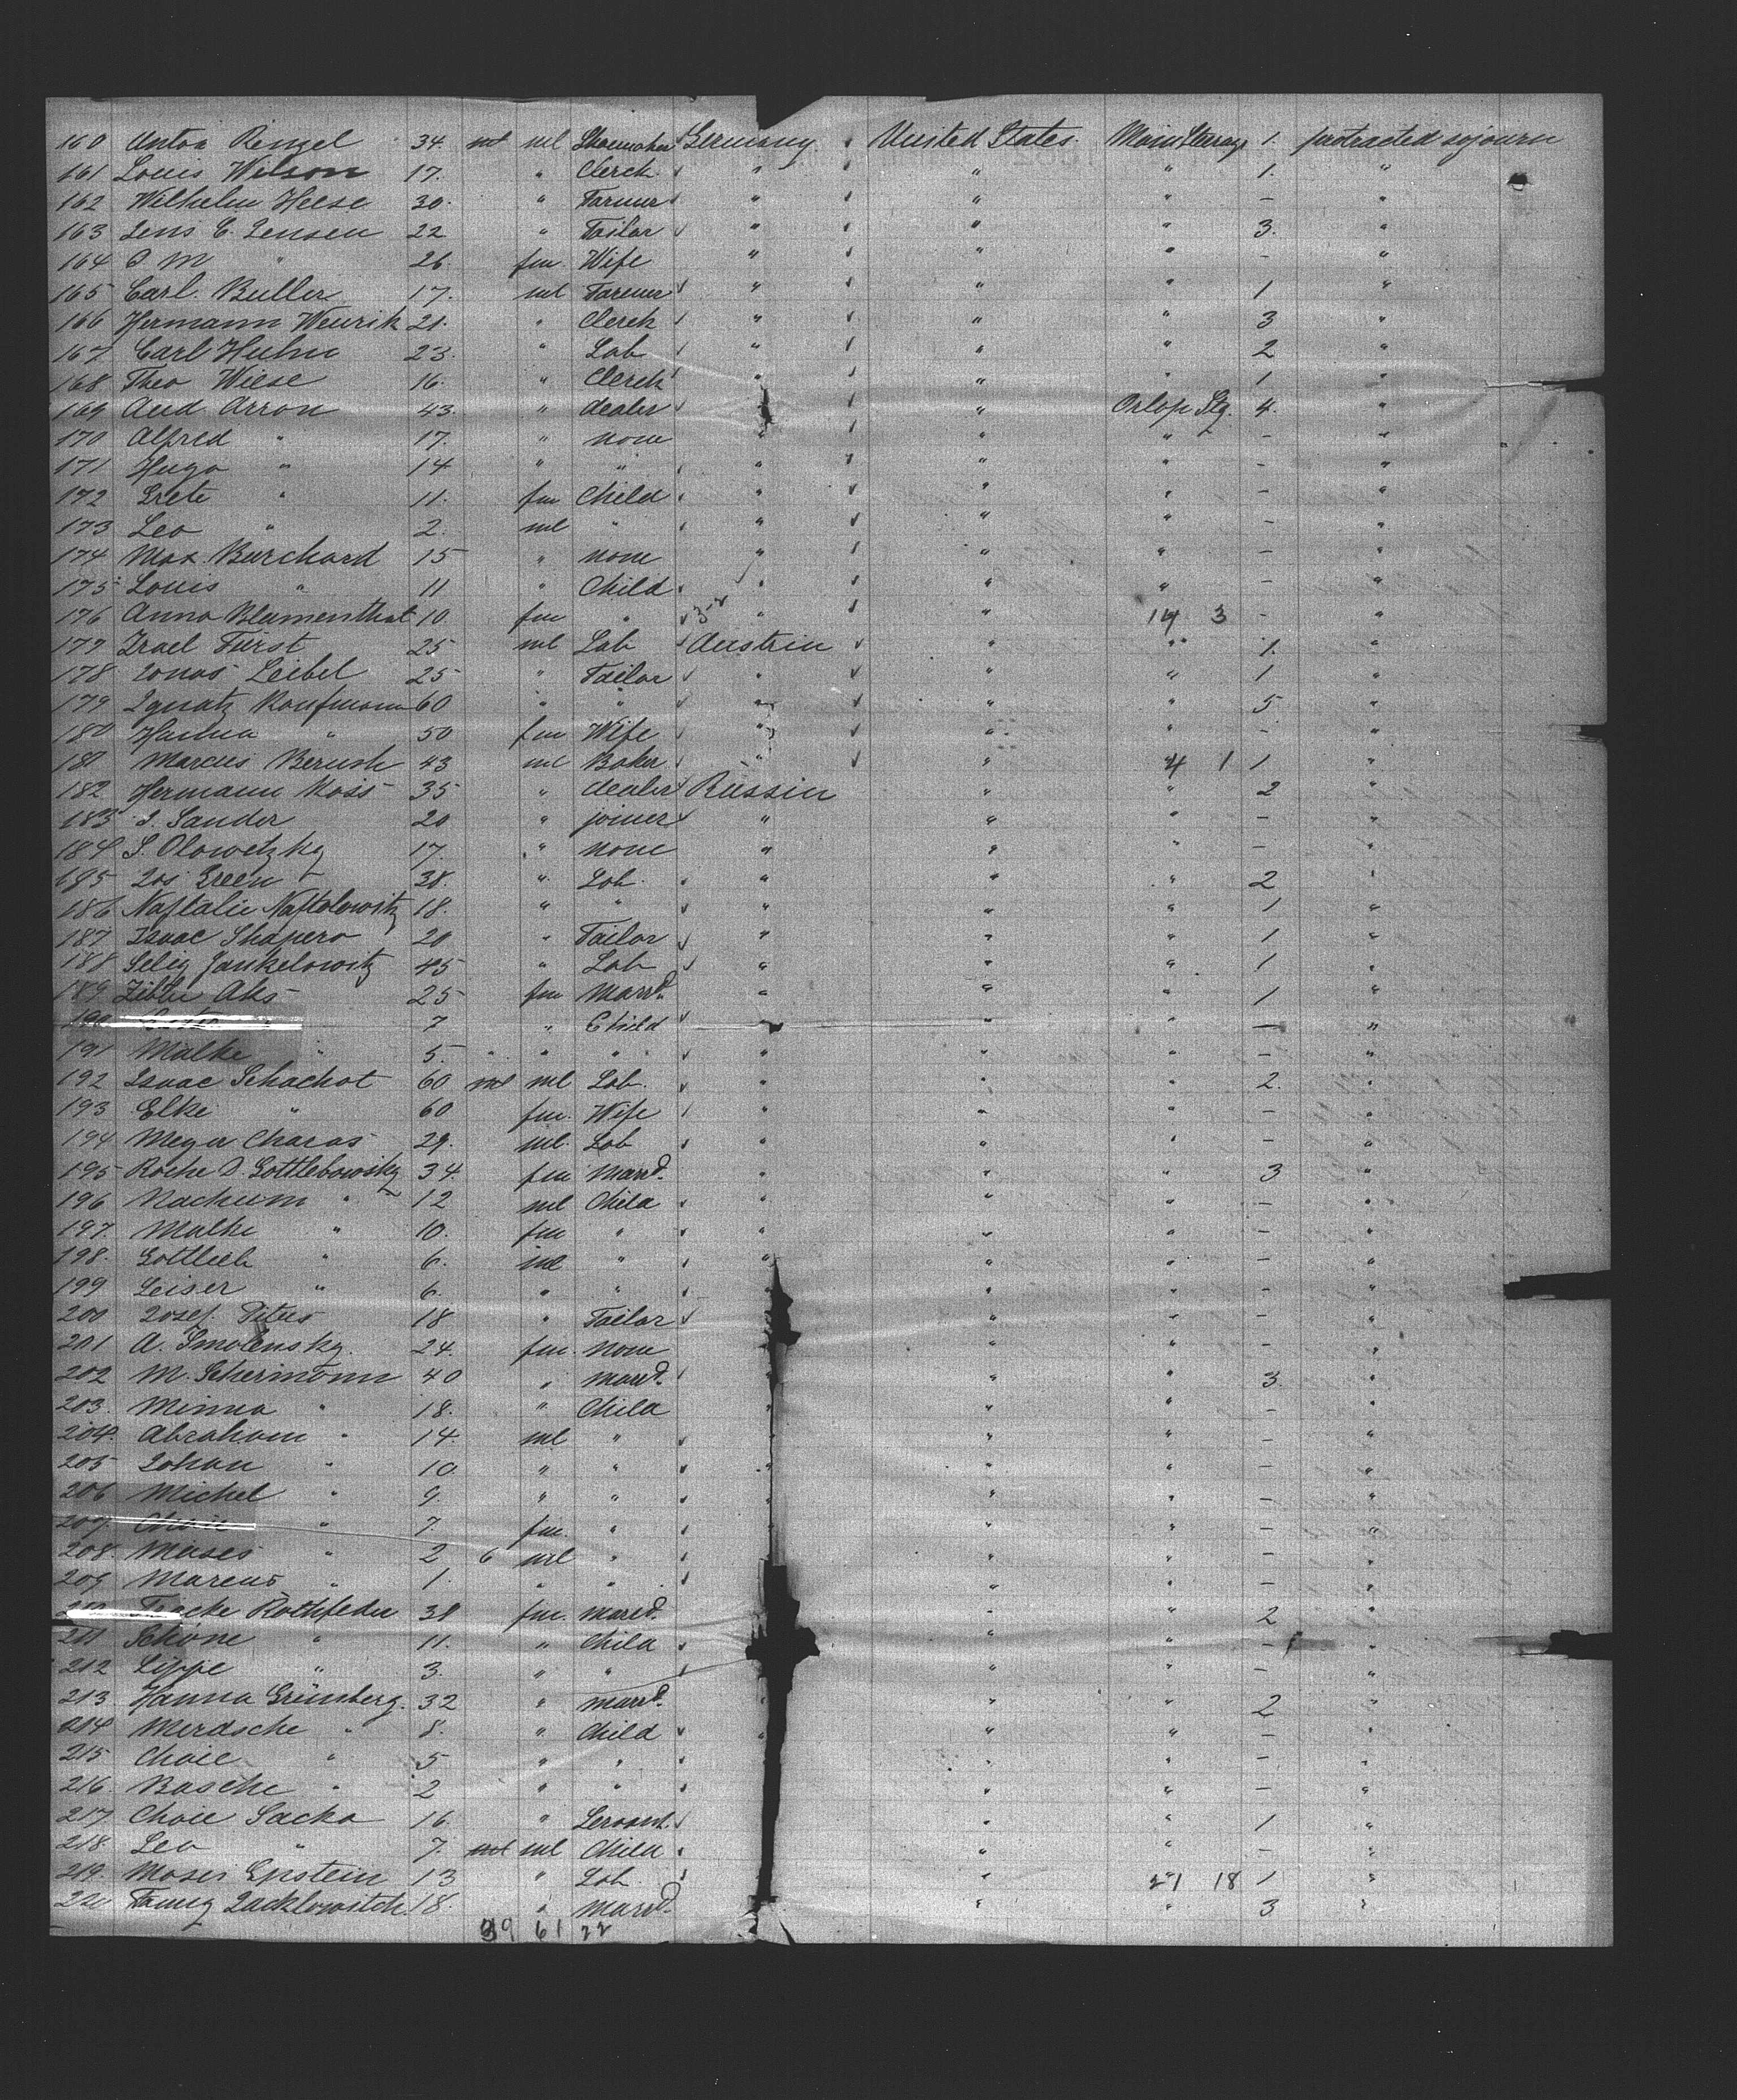 160 Anton Rengel 34. ml ml Shoemaker Germany United States. Main Steerage 1. protracted sojourn
161 Louis Wilson 17. " Clerck " " " 1. "
162 Wilhelm Heese 30. " Farmer " " " - "
163 Jens C. Jensen 22 " Tailor " " " 3. "
164 " 26. fm. Wife " " " - "
165 Carl Buller 17. ml Farmer " " " 1 "
166 Hermann 21. " Clerck " " " 3 "
167 Carl Huhn 23. " Lab " " " 2 "
168 Theo Wiese 16. " Clerck " " " 1 "
169 Arron 43. " dealer " " Orlop Stg. 4. "
170 Alfred " 17. " none " " " - "
171 Hugo " 14 " " " " " - "
172 Grete " 11. fm Child " " " - "
173 Leo " 2. ml " " " " - "
174 Max Burchard 15 " none " " " - "
175 Louis " 11 " Child " " " - "
176 Anna Blumenthal 10. fm " " " 14 3 - "
177 Israel Fürst 25 ml Lab Austria " " 1. "
178 Jonas Leibel 25 " Tailor " " " 1 "
179 Ignatz Kaufmann 60 " " " " " 5. "
180 " 50 fm Wife " " " - "
181 Marcus Berush 43 ml Baker " " 4 1 1 "
182 Hermann Koss 35 " dealer Russia " " 2 "
183 J. Sander 20 " joiner " " " - "
184 S. Olowetzky 17. " none " " " - "
185 Jos. Green 38. " Lab. " " " 2 "
186 Naftalie Naftolowitz 18. " " " " " 1 "
187 Isaac Shapero 20 " Tailor " " " 1 "
188 Selig Jankelowitz 45 " Lab " " " 1 "
189 Aks 25 fm marrd. " " " 1 "
190 " 7 " Child " " - "
191 Malke " 5. " " " " " - "
192 Isaac Schachat 60 ml ml Lab. " " " 2. "
193 Elke " 60 fm. Wife " " " - "
194 Meyer Charas 29. ml. Lab " " " - "
195 Roche D. Gottlebowsky 34. fm marrd. " " " 3 "
196 Nachum " 12 ml Child " " " - "
197. Malke " 10. fm " " " " - "
198. Gottlieb " 6. ml " " " " - "
199 Leiser " 6. " " " " - "
200 Josef 18 " Tailor " " - "
201 A. Smolensky. 24. fm. none " " - "
202 M. Schermann 40 " marrd. " " " 3. "
203. Minna " 18. " Child " " " - "
204. Abraham " 14. ml " " " " - "
205 Johan " 10. " " " " " - "
206 Michel " 9. " " " " " - "
207. " 7. fm. " " " - "
208. Moses " 2 6 ml " " " - "
209 Marcus " 1. " " " " - "
Rothfeder 38 fm. marrd. " " 2 "
211 Schöne " 11. " Child " " - "
212 Lippe " 3. " " " " - "
213. Hanna Grünberg. 32 " marrd. " " " 2 "
214 Merdsche " 8. " Child " " " - "
215 Chaie " 5 " " " " - "
216. Basche " 2 " " " " - "
217 Chaie Sacka 16. " Servant. " " 1 "
218. Leo " 7. ml ml Child " " - "
219. Moses Epstein 13 " Lab. " 27 18 1 "
220 18. " marrd. " " 3 "
39 61 22